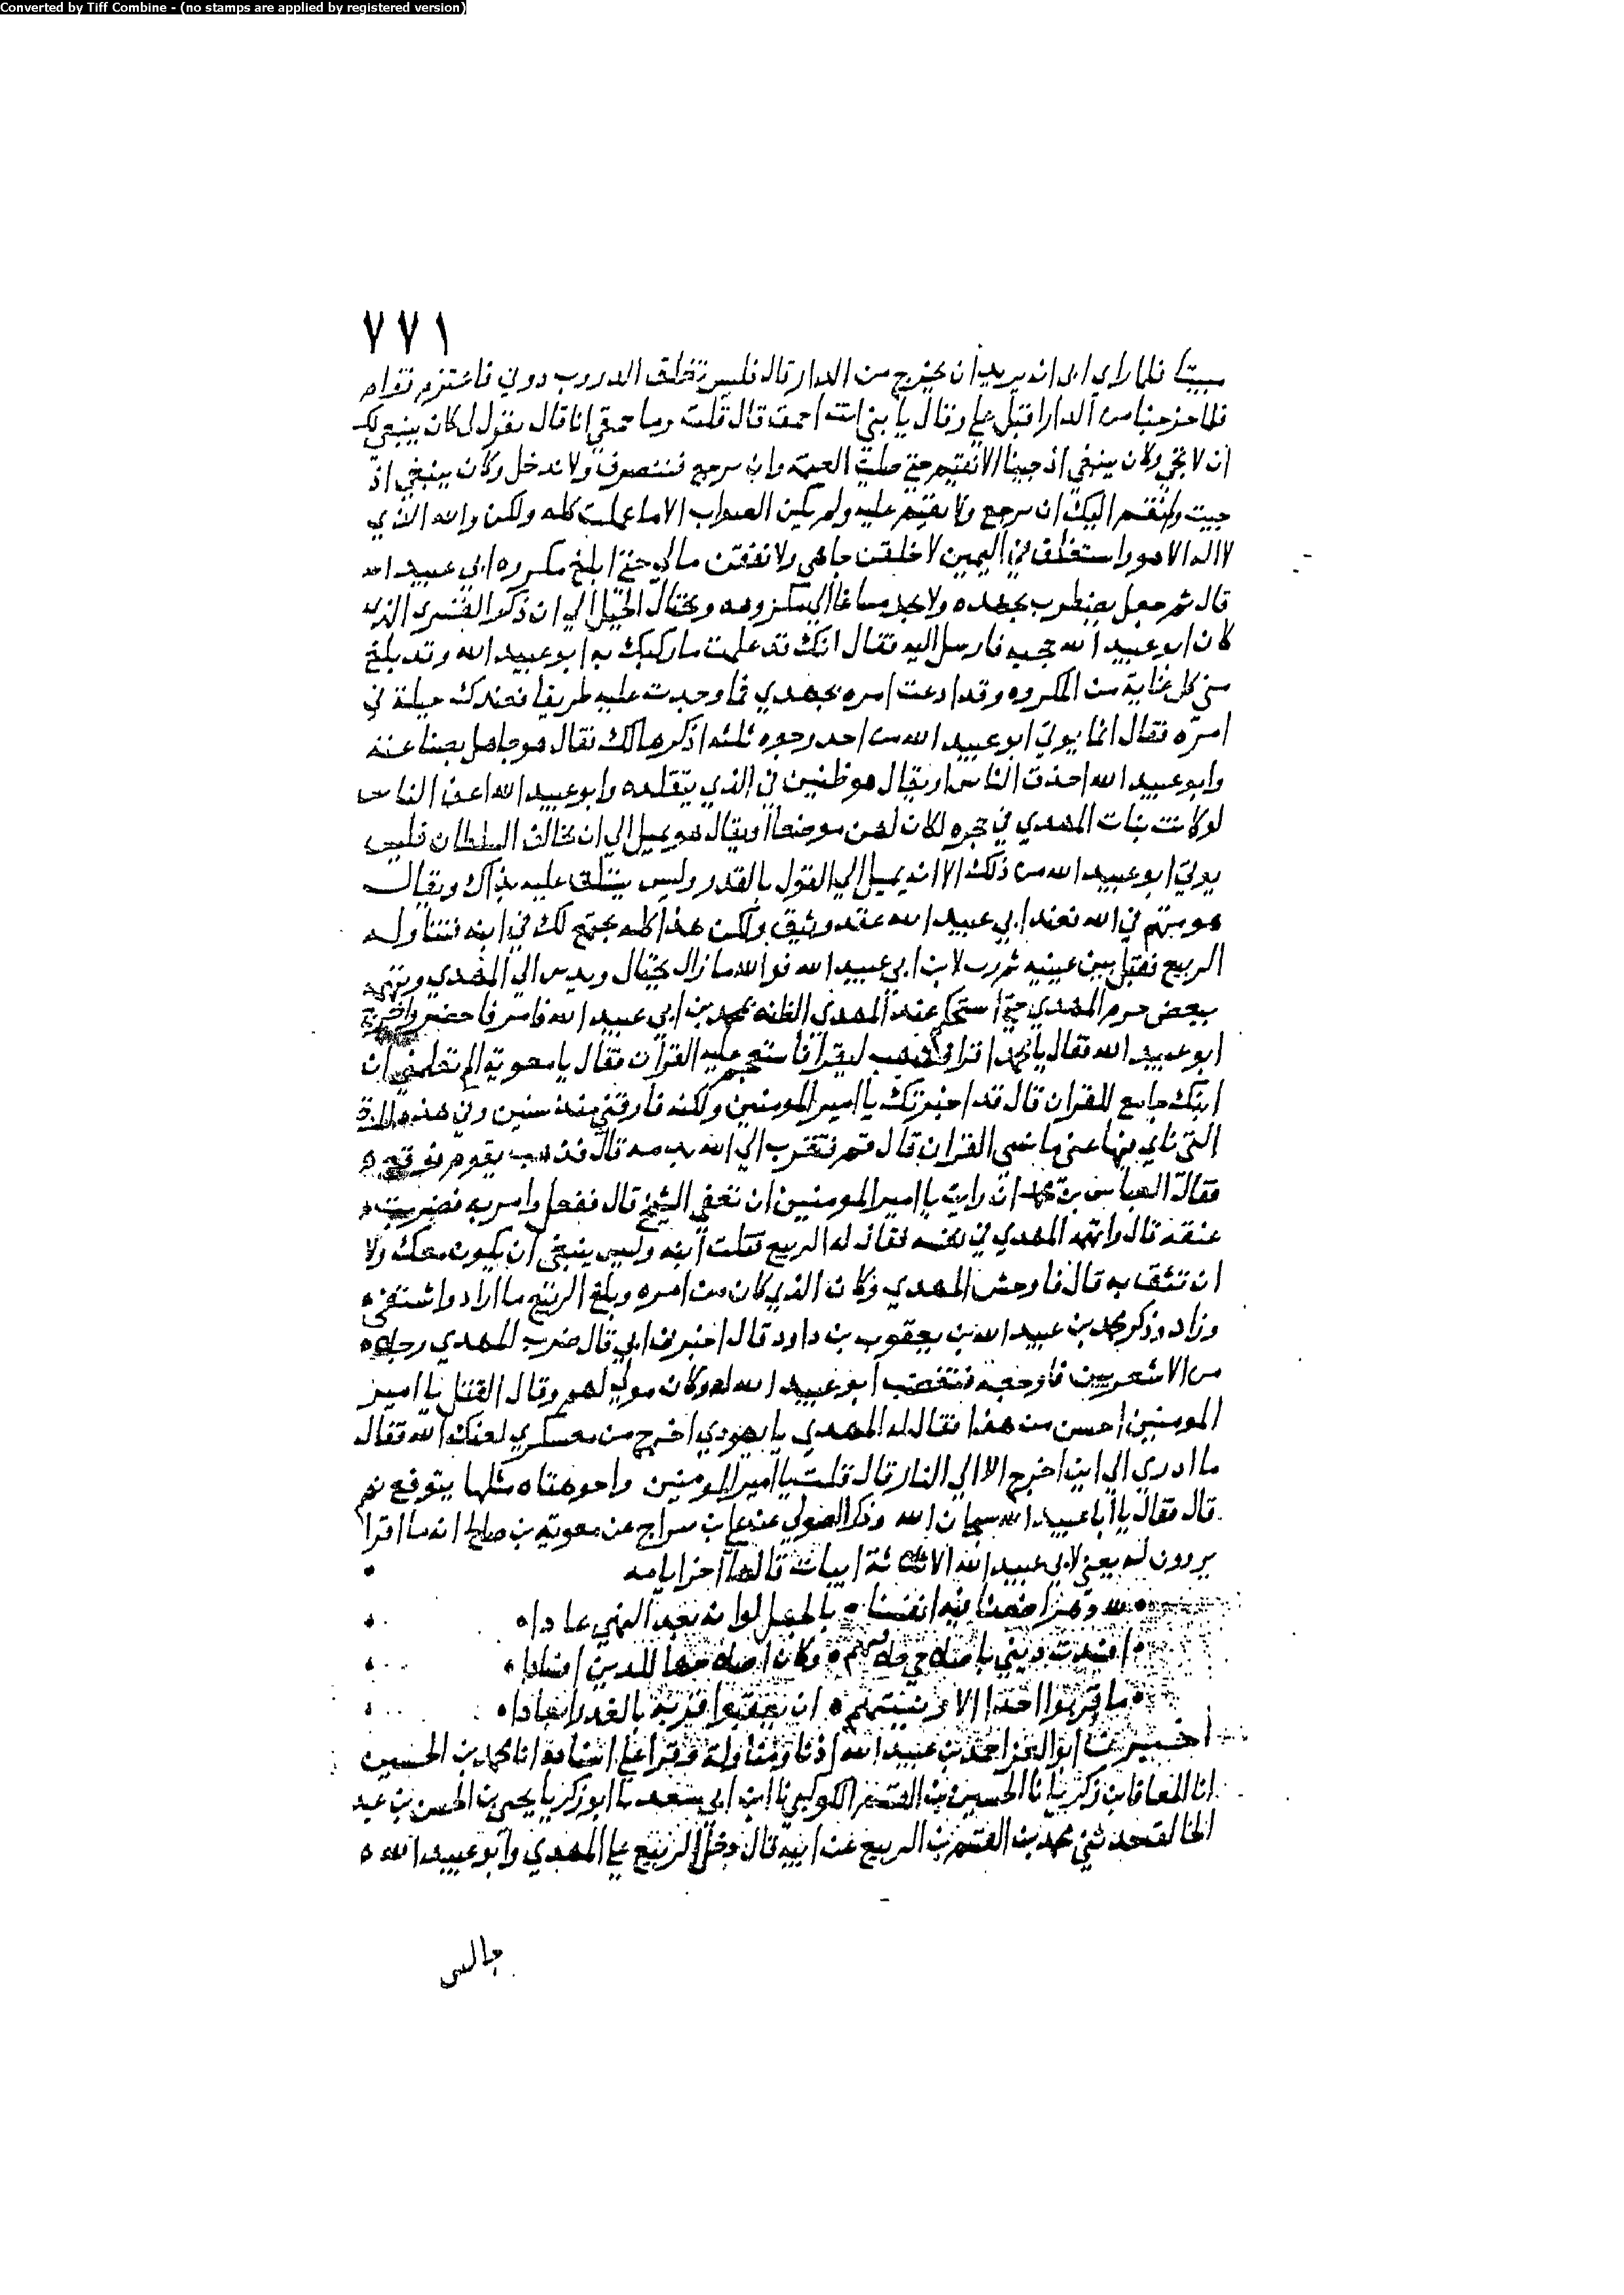 Converted by Tiff Combine - (no stamps are applied by registered version)
٧٧١
مبيتا فلما راى ابى انه يريد ان يخرج من الدار قال فليس تغلق الدروب دوني فاعتزم فقام
فلما خرجنا من الدار اقبل علي وقال يا بني انت احمق قال قلت وما حمقي انا قال يقول لي كان ينبغي لك
ان لا تجي وكان ينبغي اذ جينا الا نقيم حتى صليت العتمة وان نرجع فننصرف ولا ندخل وكان ينبغي اذ
جيت ولم يقم اليك ان نرجع ولا نقيم عليه ولم يكن الصواب الا ما عملت كله ولكن والله الذي
لا اله الا هو واستغلق في اليمين لاخلقن جاهي ولا نفقن مالي حتى ابلغ مكروه ابي عبيد الله
قال ثم جعل يضطرب بجهده ولا يجد مساغا الى مكروهه ويحتال الحيل الى ان ذكر القشري الذي
كان ابو عبيد الله حجبه فارسل اليه فقال انك قد علمت ما ركبك به ابو عبيد الله وقد بلغ
مني كل غاية من المكروه وقد ارغت امره بجهدي فما وجدت عليه طريقا فعندك حيلة في
امره فقال انما يوتى ابو عبيد الله من احد وجوه ثلثه اذكرها لك يقال هو جاهل بصناعته
وابو عبيد الله احذق الناس او يقال هو ظنين في الذي يتقلده وابو عبيد الله اعف الناس
لو كانت بنات المهدي في حجره لكان لهن موضعا او يقال هو يميل الى ان يخالف السلطان فليس
يوتى ابو عبيد الله من ذلك الا انه يميل الى القول بالقدر وليس يتعلق عليه بذاك ويقال
هو متهم في الله فعند ابي عبيد الله عقد وثيق ولكن هذا كله يجتمع لك في ابنه فتناوله
الربيع فقبل بين عينيه ثم دب لابن ابي عبيد الله فوالله ما زال يحتال ويدس الى المهدي ويتهمه
ببعض حرم المهدي حتى استحكم عند المهدي الظنة بمحمد بن ابي عبيد الله فامر فاحضر واخرج
ابو عبيد الله فقال يا محمد اقرا فذهب ليقرا فاستعجم عليه القران فقال يا معوية الم تعلمني ان
ابنك جامع للقران قال قد اخبرتك يا امير المومنين ولكنه فارقني منذ سنين وفي هذه المدة
التي ناي فيها عني ما نسى القران قال قم فتقرب الى الله بدمه قال فذهب يقوم فوقع ه
فقال العباس بن محمد ان رايت يا امير المومنين ان تعفي الشيخ قال ففعل وامر به فضربت
عنقه قال واتهمه المهدي في نفسه فقال له الربيع قتلت ابنه وليس ينبغي ان يكون معك ولا
ان تثق به قال فاوحش المهدي وكان الذي كان من امره وبلغ الربيع ما اراد واشتفى ه
وزاد وذكر محمد بن عبيد الله بن يعقوب بن داود قال اخبرني ابي قال ضرب المهدي رجلا ه
من الاشعريين فاوجعه فتعصب ابو عبيد الله له وكان مولى لهم وقال القتل يا امير
المومنين احسن من هذا فقال له المهدي يا يهودي اخرج من معسكري لعنك الله فقال
ما ادري الى اين اخرج الا الى النار قال قلت يا امير المومنين واحر هتاه مثلها يتوقع نعم
قال فقال يا ابا عبيد الله سبحان الله وذكر الصولي عن علي بن سراج عن معوية بن صالح انه ما اقرا
يروون له يعني لابي عبيد الله الا ثلاثة ابيات قالها اخر ايامه
لله دهر اضعنا فيه انفسنا ه بالجهل لو انه بعد النهى عادا ه
افسدت ديني باصلاحي خلافتهم ه وكان اصلاحها للدين افسادا ه
ما قربوا احدا الا ونيتهم ه ان يعقبوا قربه بالغدر ابعادا ه
اخبرنا ابو العز احمد بن عبيد الله اذنا ومناولة وقرا علي اسناده انا محمد بن الحسين
انا المعافا بن زكريا نا الحسين بن القسم الكوكبي نا ابن ابي سعد نا ابو زكريا يحيى بن الحسن بن عبد
الخالق حدثني محمد بن القسم بن الربيع عن ابيه قال دخل الربيع على المهدي وابو عبيد الله ه
جالس